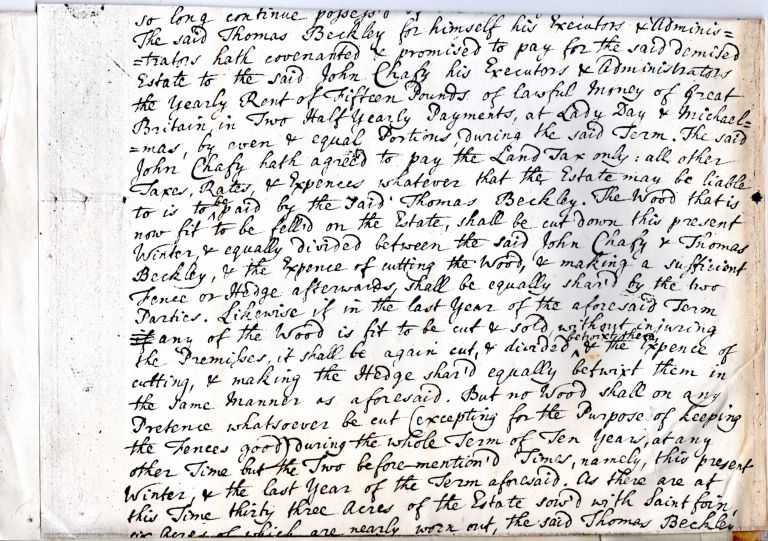 so long continue possess'd
The said Thomas Beckley for himself his Executors & Adminis=
=trators hath covenanted & promised to pay for the said demised
Estate to the said John Chafy his Executors & Administrators
the Yearly Rent of Fifteen Pounds of lawful Money of Great
Britain, in Two Half Yearly Payments, at Lady Day & Michael=
=mas, by even & equal Portions, during the said Term. The said
John Chafy hath agreed to pay the Land Tax only: all other
Taxes, Rates, & Expences whatever that the Estate may be liable
to is to be paid by the said Thomas Beckley. The Wood that is
now fit to be fell'd on the Estate, shall be cut down this present
Winter, & equally divided between the said John Chafy & Thomas
Beckley, & the Expence of cutting the Wood, & making a sufficient
Fence or Hedge afterwards, shall be equally shar'd by the two
Parties. Likewise if in the last Year of the aforesaid Term
if any of the Wood is fit to be cut & sold without injuring
the Premisses, it shall be again cut, & divided betwixt them, & the Expence of
cutting, & making the Hedge shar'd equally betwixt them in
the same Manner as aforesaid. But no Wood shall on any
Pretence whatsoever be cut (excepting for the Purpose of keeping
the Fences good) during the whole Term of Ten Years, at any
other Time but the Two before-mention'd Times, namely, this present
Winter, & the last Year of the Term aforesaid. As there are at
this Time thirty three Acres of the Estate sow'd with Saint foin,
six Acres of which are nearly worn out, the said Thomas Beckley